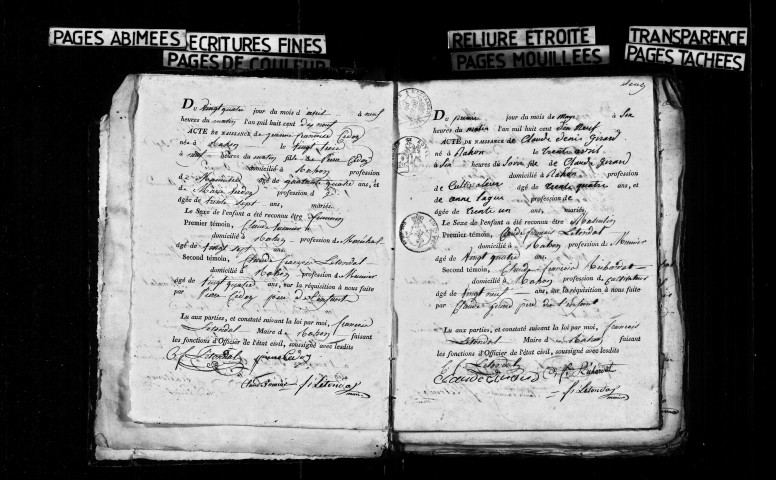 PAGES ABIMEES
ECRITURES FINES
PAGES DE COULEUR
RELIURE ETROITE
PAGES MOUILLEES
TRANSPARENCE
PAGES TACHEES
Du vingt quatre jour du mois d'avril à neuf
heures du matin l'an mil huit cent dix neuf
ACTE DE NAISSANCE de jeanne françoise
né à Rahon le vingt trois
à heures du matin fille de Pierre
domicilié à Rahon profession
de agé de quarante quatre ans, et
de Marie profession d
agée de trente sept ans, mariés.
Le Sexe de l'enfant a été reconnu être féminin
Premier témoin, Claude
domicilié à Rahon profession de Maréchal
agé de vingt sept ans.
Second témoin, Claude françois Letondal
domicilié à Rahon profession de Meunier
agé de vingt quatre ans, sur la réquisition à nous faite
par Pierre père de l'enfant
Lu aux parties, et constaté suivant la loi par moi, françois
Letondal Maire d Rahon faisant
les fonctions d'Officier de l'état civil, soussigné avec lesdits
Letondal
f. Letondal
maire
Du premier jour du mois de May à six
heures du matin l'an mil huit cent dix neuf
ACTE DE NAISSANCE de Claude denis Girard
né à Rahon le trente avril
à six heures du soir fils de Claude Girard
domicilié à Rahon profession
de Cultivateur agé de trente quatre ans, et
de anne profession de
agée de trente un ans, mariés.
Le Sexe de l'enfant a été reconnu être Masculin
Premier témoin, Claude françois Letondal
domicilié à Rahon profession de Meunier
agé de vingt quatre ans.
Second témoin, Claude françois Richardet
domicilié à Rahon profession de cultivateur
agé de vingt neuf ans, sur la réquisition à nous faite
par Claude Girard père de l'enfant
Lu aux parties, et constaté suivant la loi par moi, françois
Letondal Maire d Rahon faisant
les fonctions d'Officier de l'état civil, soussigné avec lesdits
Letondal
f. Letondal
maire